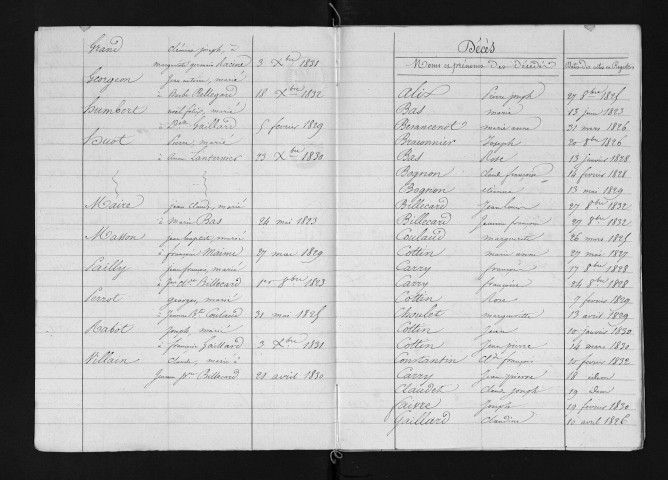 Grand Etienne joseph, à
marguerite germaine Racine 3 Xbre 1831
Georgeon jean antoine, marié
à Barbe Bellegard 18 Xbre 1832
Humbert noël félix, marié
à Gaillard 5 fevrier 1829
Huot Pierre, marié
à Anne Lanternier 23 Xbre 1830
Maire jean claude, marié
à Marie Bas 24 mai 1823
Masson jean baptiste, marié
à françoise Maime 27 mai 1829
Pailly jean françois, marié
à Billecard 1er 8bre 1823
Perrot Georges, marié
à Jeanne Bte Coulaud 31 mai 1825
Rabot Joseph, marié
à françoise Gaillard 3 Xbre 1831
Villain Claude, marié à
Jeanne Billecard 21 avril 1830
Décès
Noms et prénoms des Décédés Dates des actes au Registre
Alix Pierre joseph 27 8bre 1825
Bas marie 13 1823
marie anne 31 mars 1826
Braunnier Joseph 20 8bre 1826
Bas Rose 13 janvier 1828
Bognon claude françois 14 fevrier 1828
Bognon etienne 13 mai 1829
Billecard 27 8bre 1832
Billecard Jeanne françoise 27 8bre 1832
Coulaud marguerite 26 mars 1825
Cottin marie anne 27 mai 1827
Carry françois 17 8bre 1828
Carry françoise 24 8bre 1828
Cottin Rose 7 fevrier 1829
Choulet marguerite 13 avril 1829
Cottin Jean 10 janvier 1830
Cottin Jean pierre 14 mars 1830
Constantin françois 10 fevrier 1832
Carry Jean pierre 18 idem
Claudet Claude joseph 19 idem
Faivre Joseph 19 fevrier 1830
Gaillard Claudine 10 avril 1826